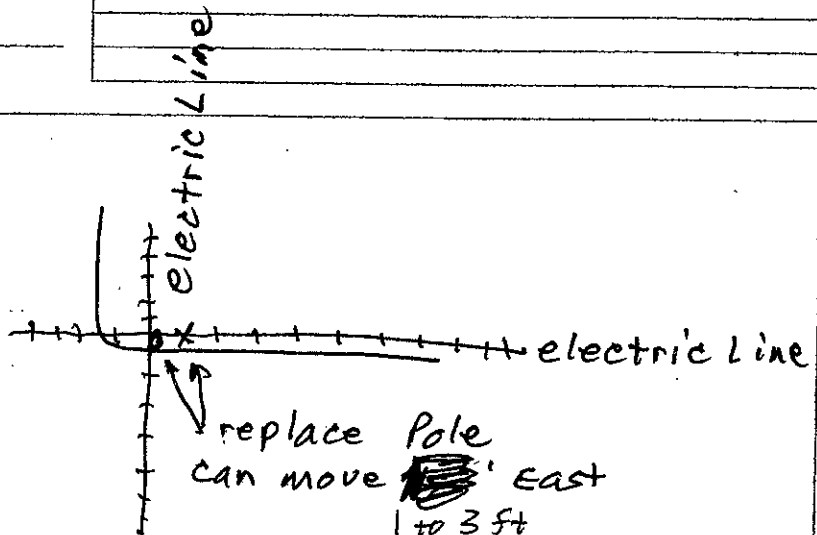 electric Line
electric Line
replace Pole
can move ' East
1 to 3 ft